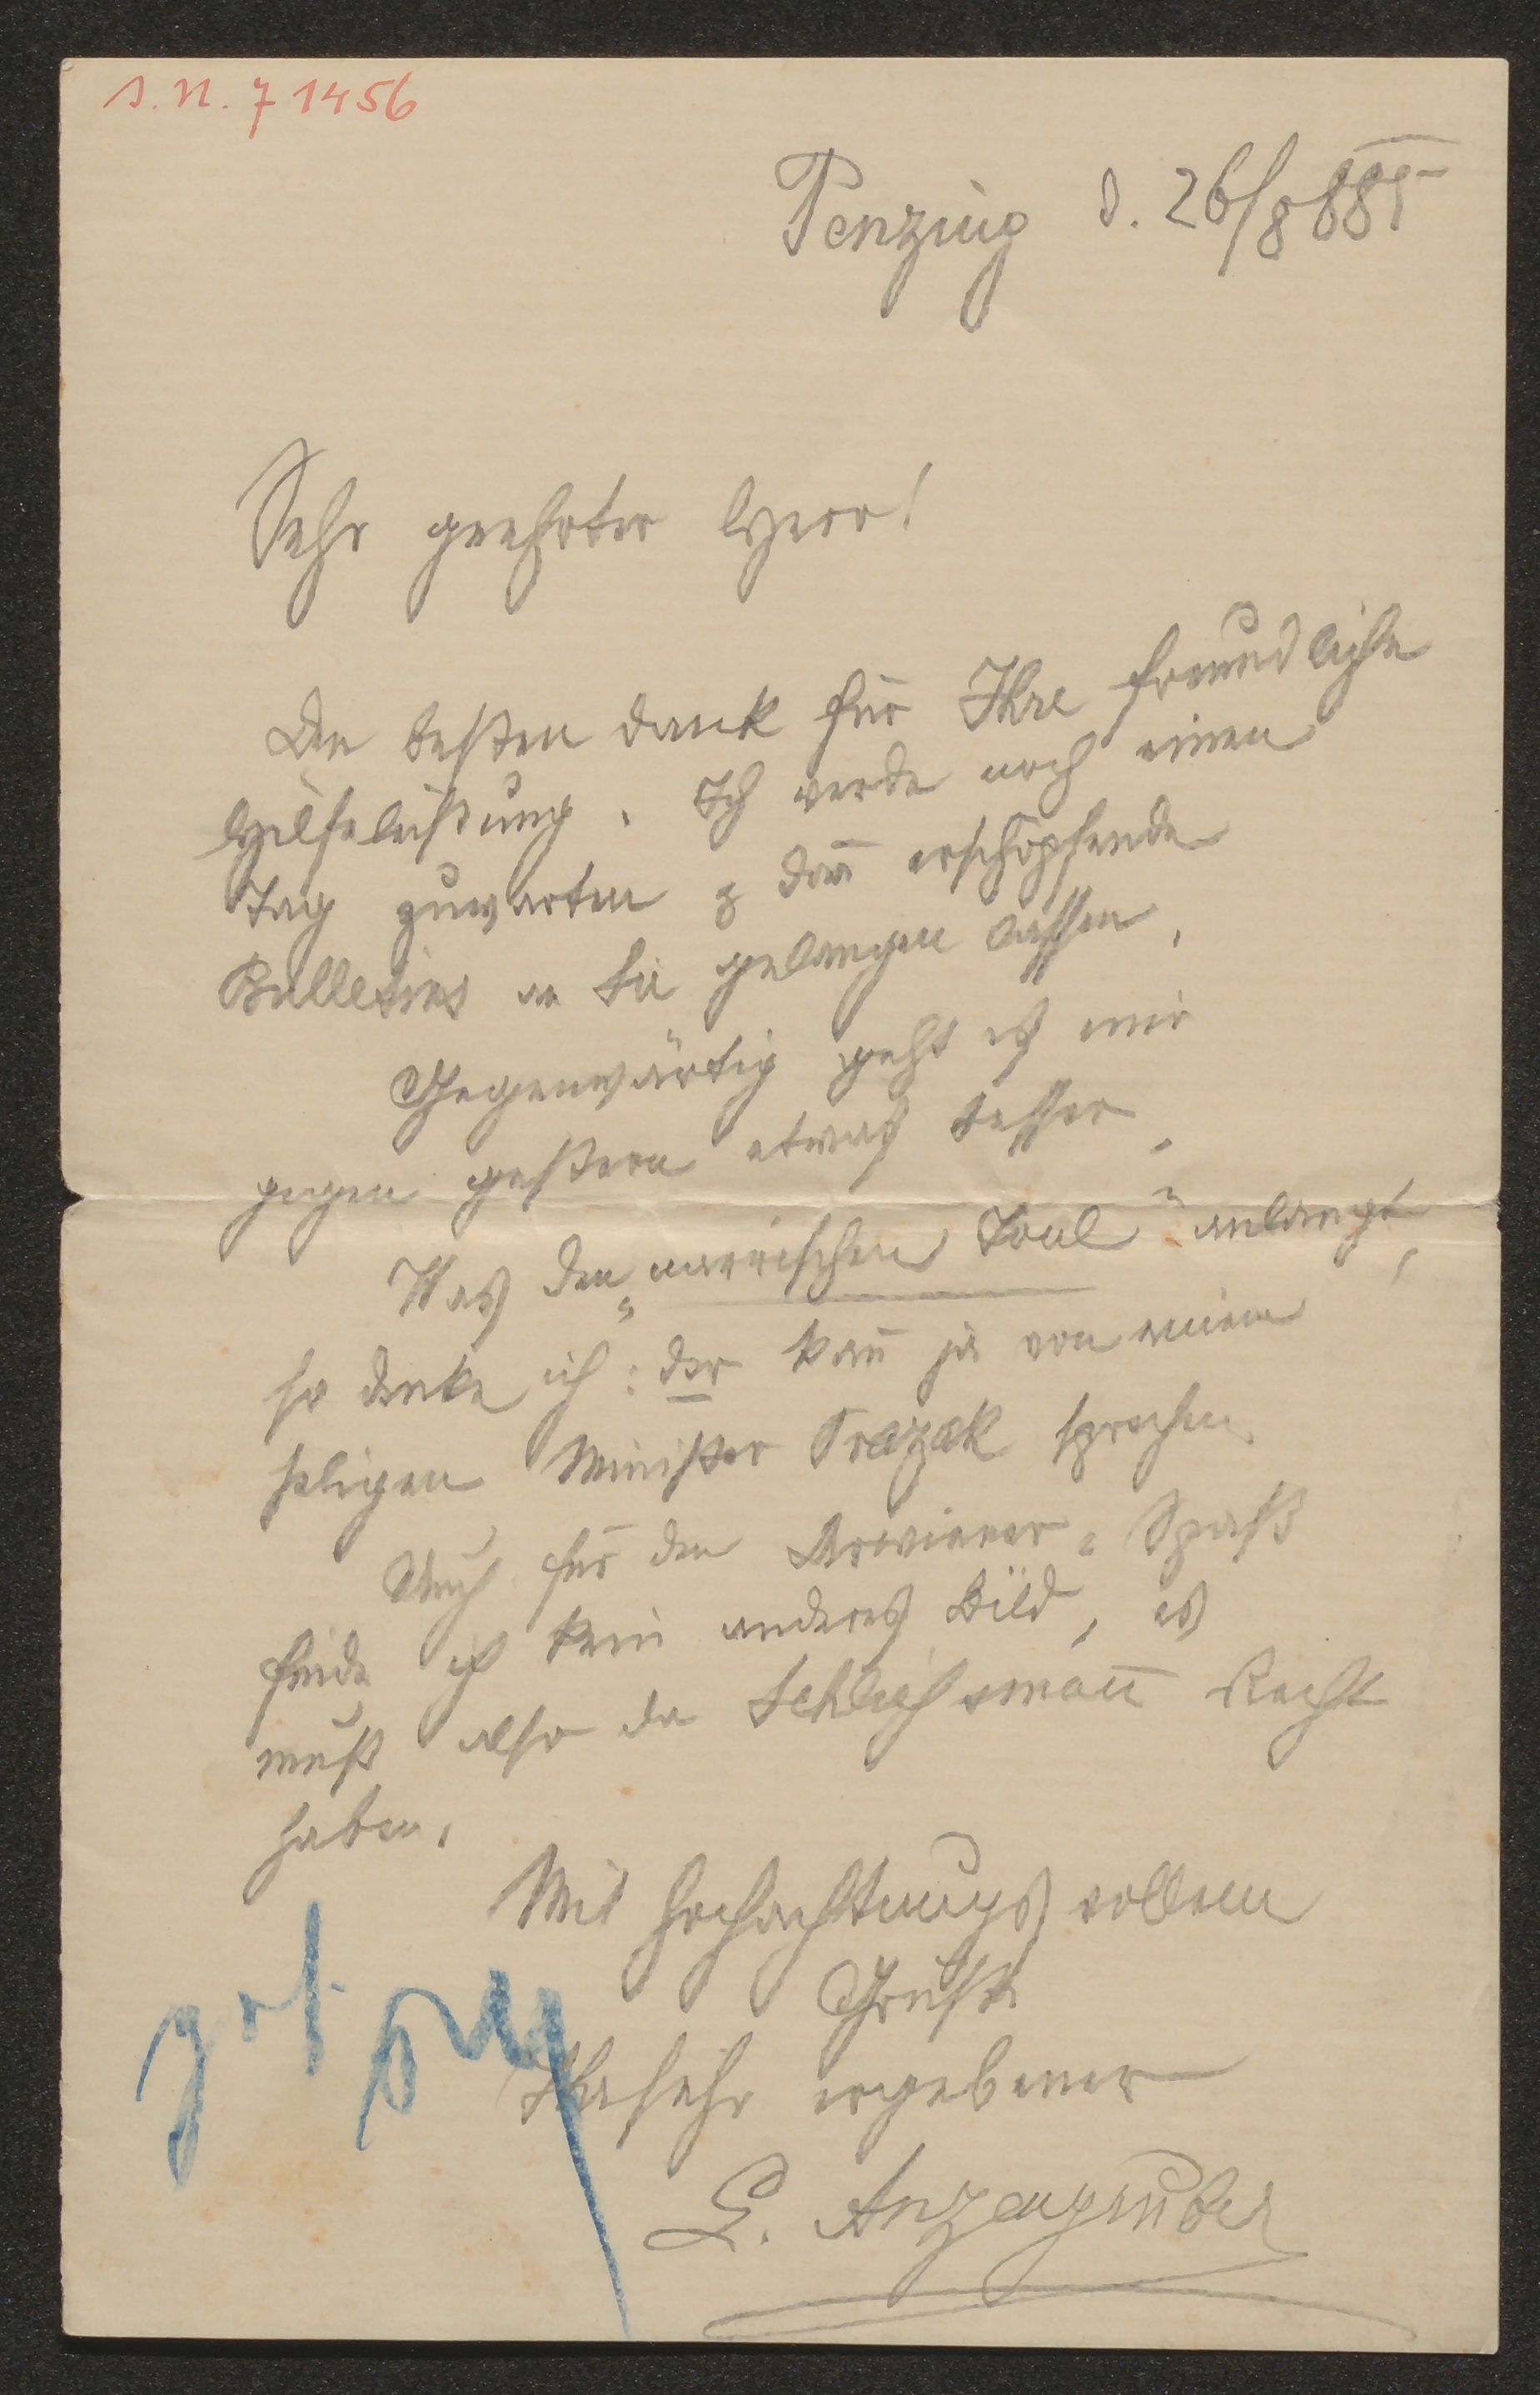 I.N. 71456
Penzing d. 26/8 885
Sehr geehrter Herr!
Den besten Dank für Ihre freundliche
Hilfeleistung. Ich werde noch einen
Tag zuwarten & dan̄ erschöpfende
Bulletins an Sie gelangen lassen.
Gegenwärtig geht es mir
gegen gestern etwas besser.
Was den „narrischen Toul“ anlangt,
so denke ich: der kan̄ ja von einem
seligen Minister Prazak sprechen.
Auch für den Urwiener-Spaß
finde ich kein anderes Bild, es
muß also da Schliessman̄ Recht
haben.
Mit hochachtungsvollem
Gruße
Ihr sehr ergebener
L. Anzengruber